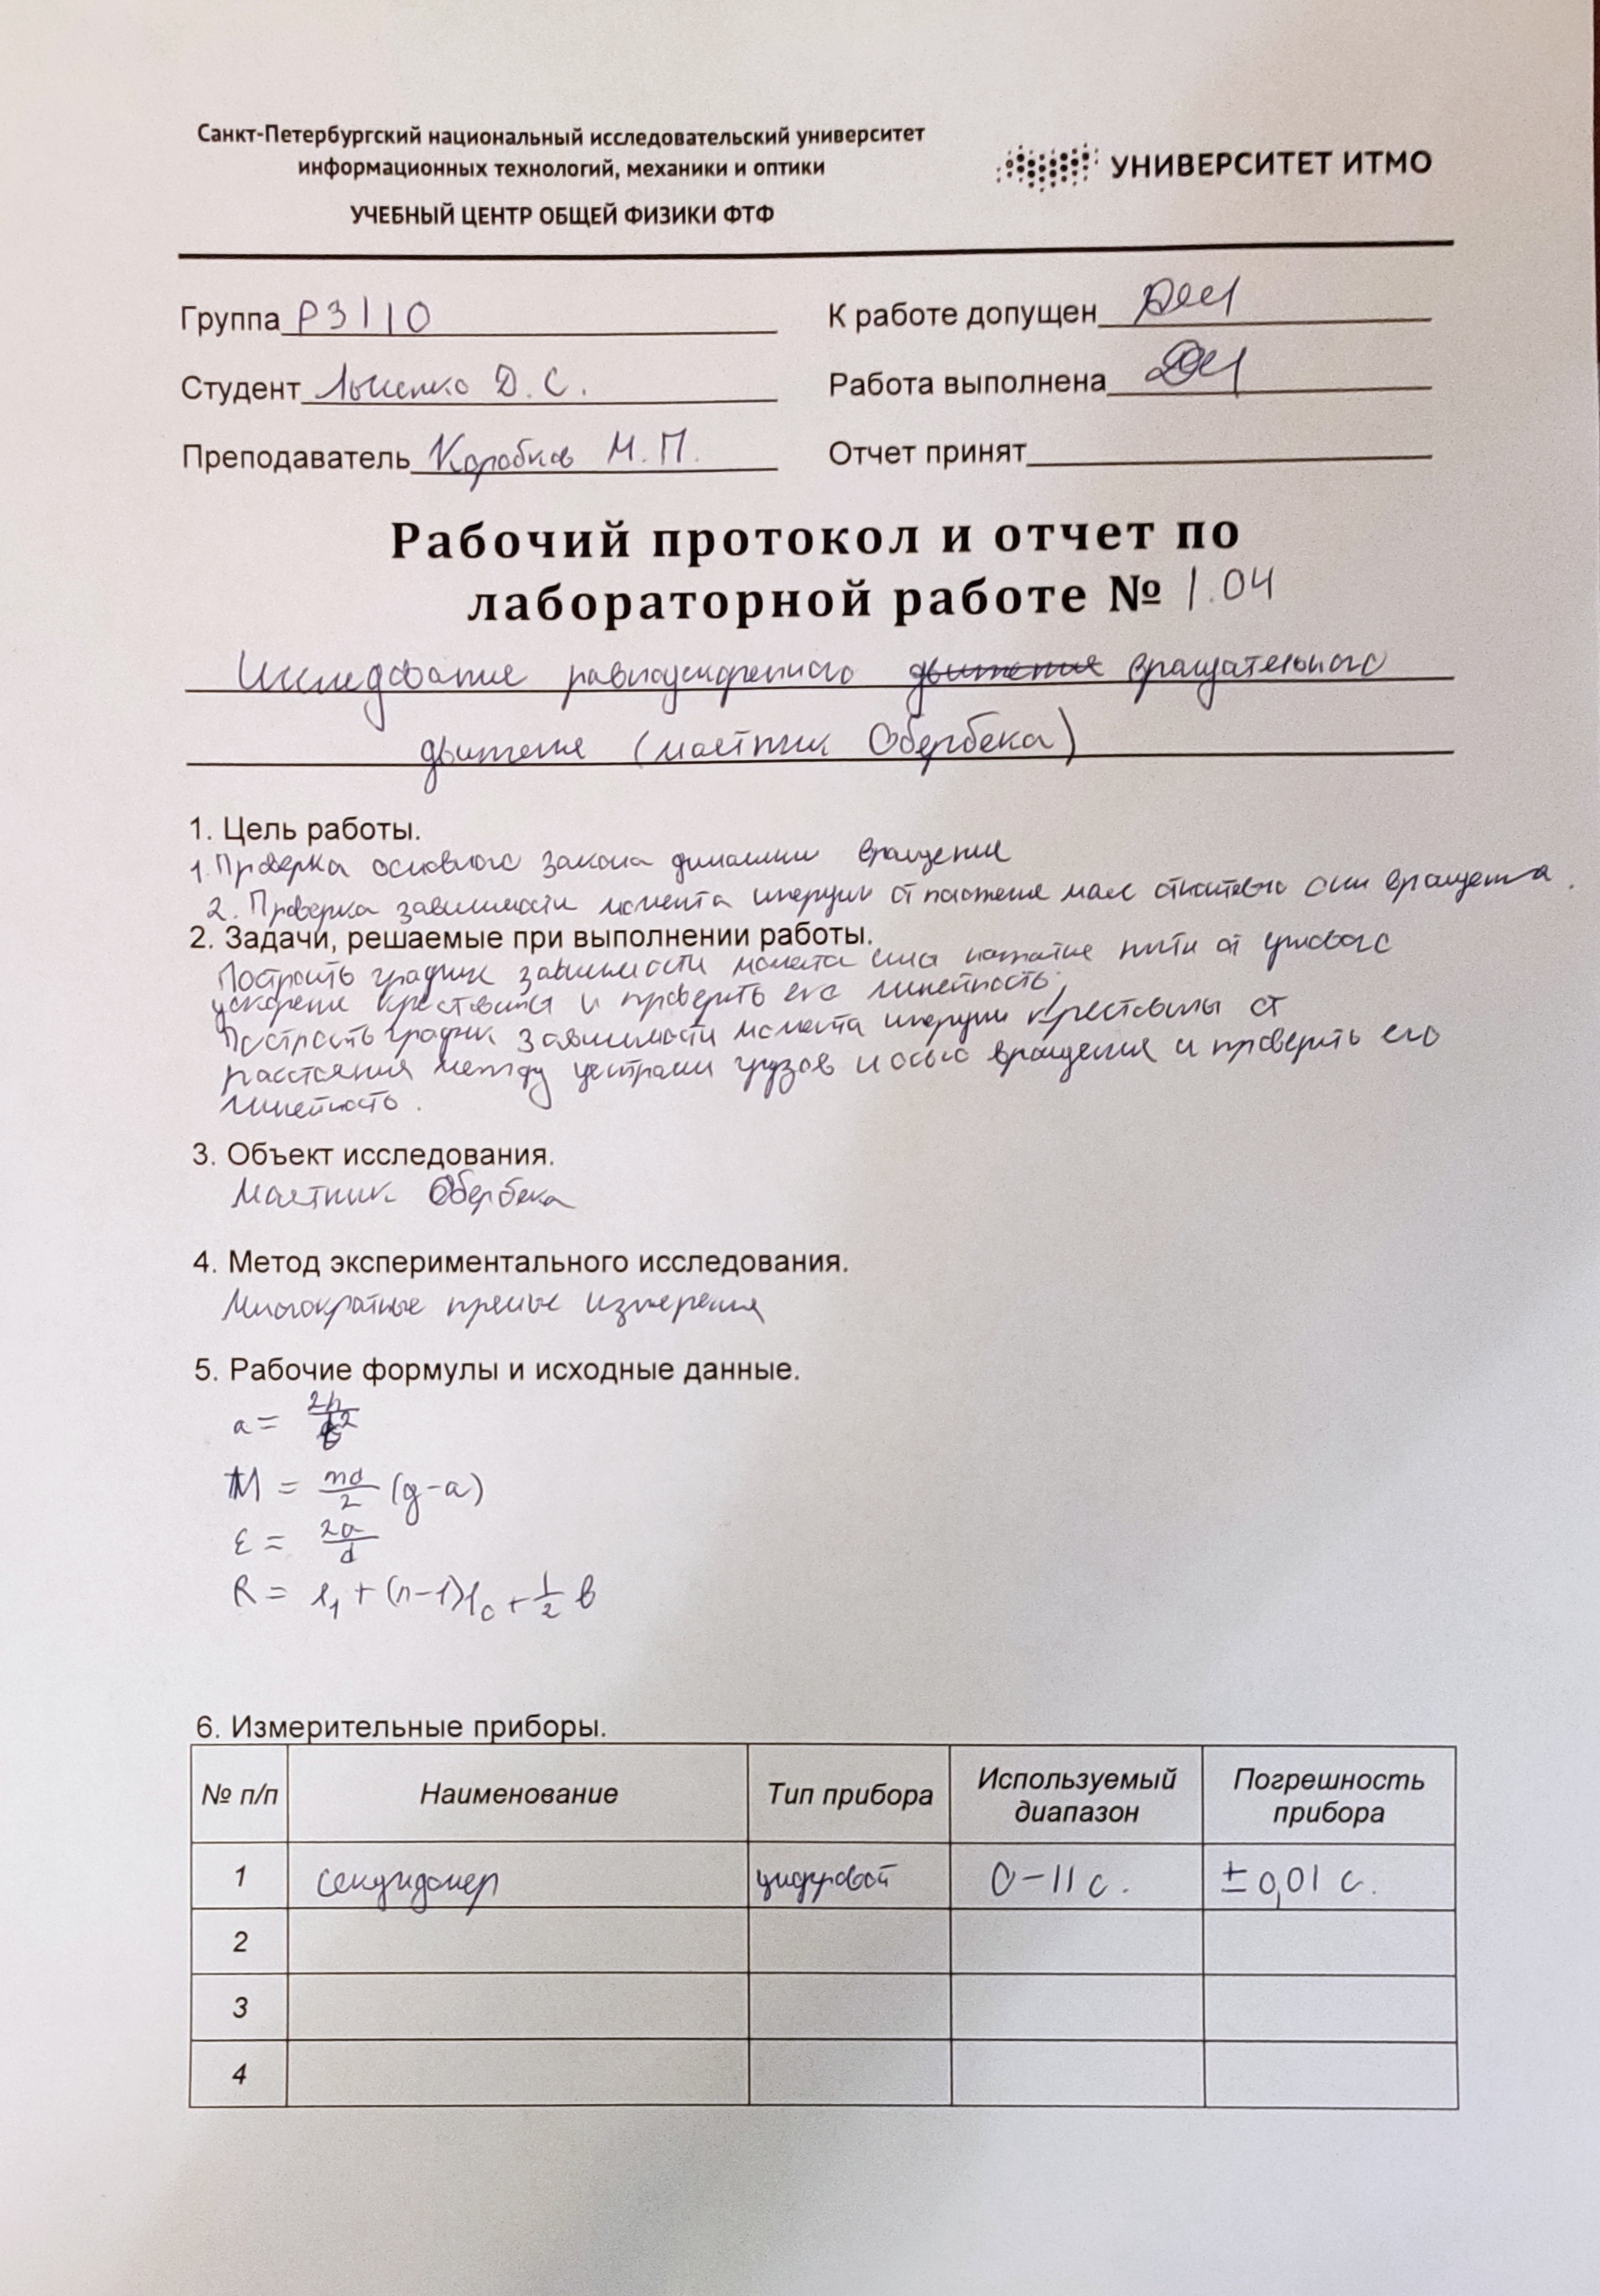 Санкт-Петербургский национальный исследовательский университет
информационных технологий, механики и оптики
УЧЕБНЫЙ ЦЕНТР ОБЩЕЙ ФИЗИКИ ФТФ
УНИВЕРСИТЕТ ИТМО
Группа P3110
К работе допущен
Студент Д. С.
Работа выполнена
Преподаватель Коробков М. П.
Отчет принят
Рабочий протокол и отчет по
лабораторной работе № 1.04
Исследование равноускоренного вращательного
движения (маятник Обербека)
1. Цель работы.
1. Проверка основного закона динамики вращения
2. Проверка зависимости момента инерции от положения масс относительно оси вращения.
2. Задачи, решаемые при выполнении работы.
Построить график зависимости момента силы натяжения нити от углового
ускорения крестовины и проверить его линейность;
Построить график зависимости момента инерции крестовины от
расстояния между центрами грузов и осью вращения и проверить его
линейность.
3. Объект исследования.
Маятник Обербека
4. Метод экспериментального исследования.
Многократные прямые измерения
5. Рабочие формулы и исходные данные.
a = 2h/t²
M = md/2 (g-a)
ε = 2a/d
R = l₁ + (n-1)l₀ + 1/2 b
6. Измерительные приборы.
№ п/п Наименование Тип прибора Используемый диапазон Погрешность прибора
1 секундомер цифровой 0-11 с. ± 0,01 с.
2
3
4